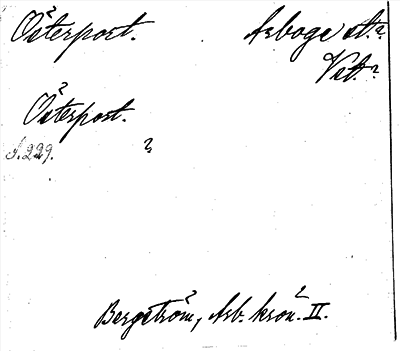 Österport. Arboga st.?
Vstl.?
Österport.
S. 229. ?
Bergström, Arb. krön. II.